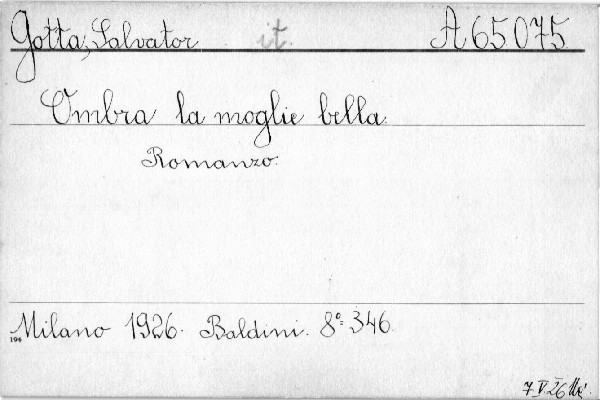 Gotta, Salvator it. A 65.075
Ombra la moglie bella.
Romanzo.
Milano 1926. Baldini. 8° 346.
196
7 V. 26